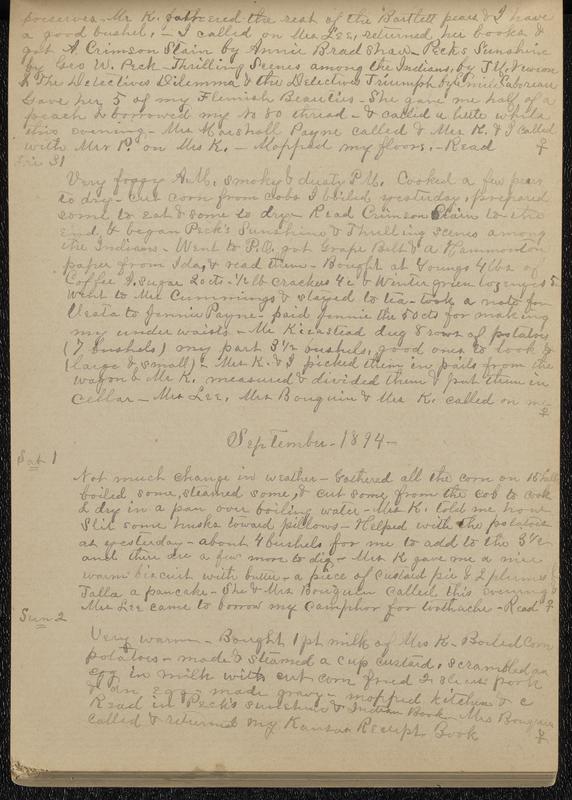 preserves. Mr K. gathered the rest of the Bartlett pears & I have
a good bushel. - I called on Mrs Lee, returned her books &
got A Crimson Stain by Annie Bradshaw - Peck's Sunshine
by Geo W. Peck - Thrilling Scenes among the Indians, by T.M. Newson
& The Detectives Dilemma & the Detectives Triumph by Emile Gaboreau
Gave her 5 of my Flemish Beauties - She gave me half of a
peach & borrowed my No 80 thread - & called a little while
this evening - Mrs Marshall Payne called & Mrs K. & I called
with Mrs P. on Mrs K. - Mopped my floors. - Read ♀
Fri 31
Very foggy A.M. smoky & dusty P.M. Cooked a few pears
to dry - cut corn from cobs I boiled yesterday, prepared
some to eat & some to dry - Read Crimson Stain to the
end, & began Peck's Sunshine & Thrilling scenes among
the Indians - Went to P.O. got Grape Belt & a Hammonton
paper from Ida, & read them - Bought at Youngs 4 lbs of
Coffee A. Sugar 20 cts - ½ lb crackers 4c & Wintergreen lozenges 5
Went to Mrs Cummings & stayed to tea - took a note for
Urata to Jennie Payne - paid Jennie the 50 cts for making
my under waists - Mr Kienstead dug 8 rows of potatoes
(7 bushels) my part 3½ bushels, good ones to look &
(large & small) - Mrs K. & I picked them in pails from the
wagon & Mr K. measured & divided them & put them in
cellar - Mrs Lee, Mrs Bouquin & Mrs K. called on me
♀
September - 1894 -
Sat 1
Not much change in weather - Gathered all the corn on 15 hills
boiled some, steamed some, & cut some from the cob to cook
& dry in a pan over boiling water - Mrs K. told me how
Slit some husks toward pillows - Helped with the potatoes
as yesterday - about 4 bushels for me to add to the 3½
and there are a few more to dig - Mrs K gave me a nice
warm biscuit with butter - a piece of custard pie & 2 plums &
Talla a pancake - She & Mrs Bouquin called this evening &
Mrs Lee came to borrow my camphor for toothache - Read ♀
Sun 2
Very warm - Bought 1 pt milk of Mrs K - Boiled Corn
potatoes - made & steamed a cup custard, scrambled an
egg in milk with cut corn fried 2 slices pork
& an egg & made gravy - mopped kitchen & c
Read in Peck's Sunshine & Indian Book - Mrs Bouquin
called & returned my Kansas Receipt Book ♀